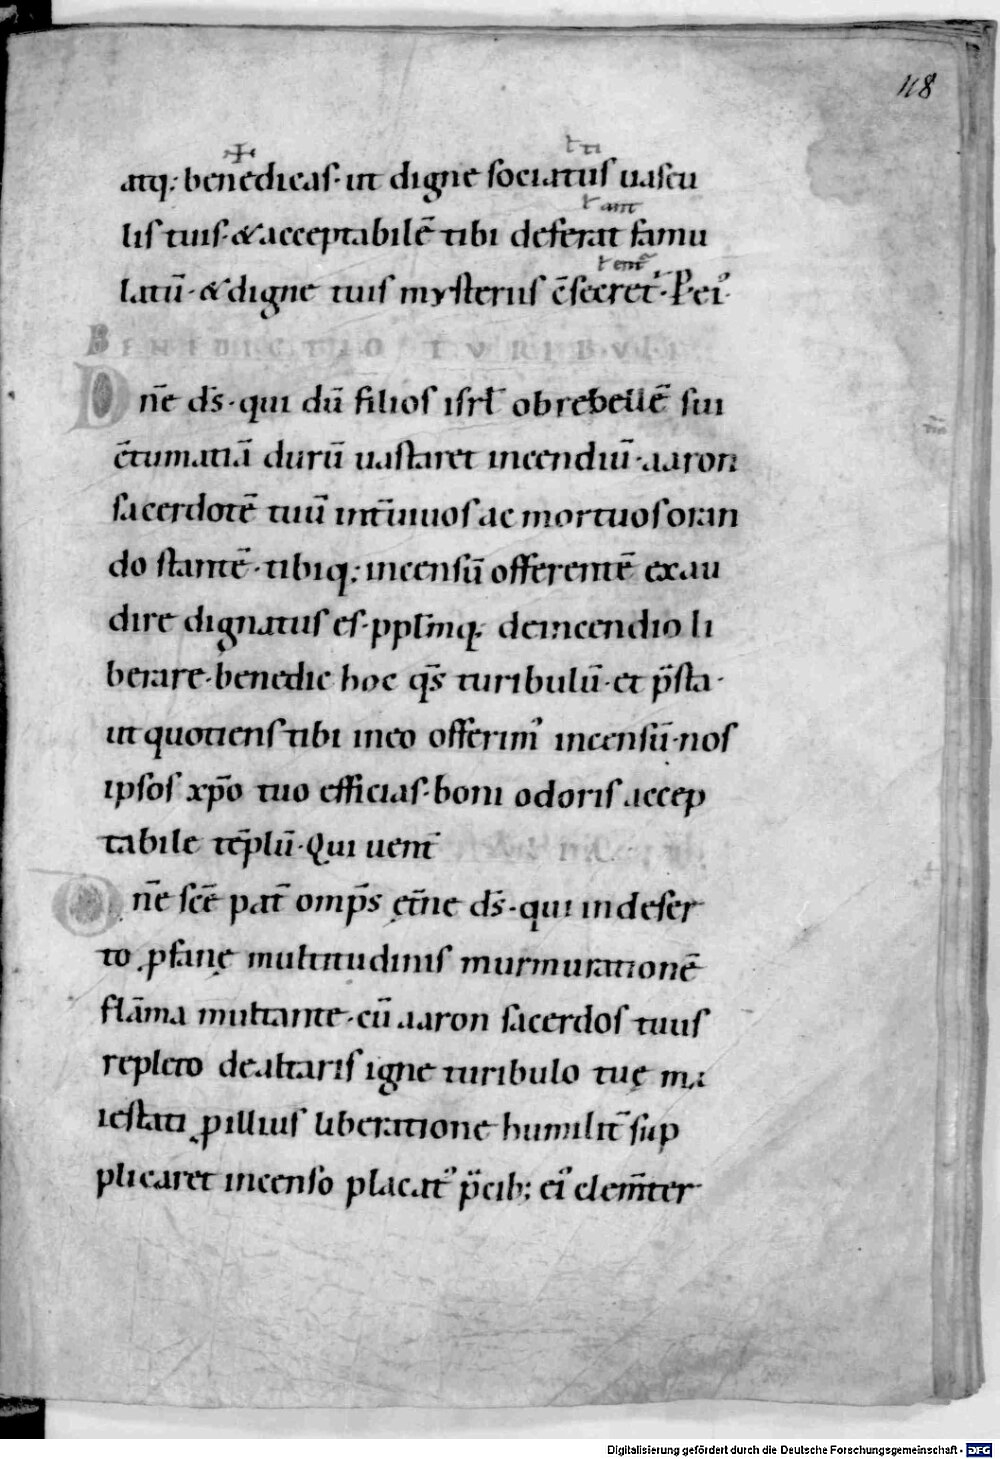 118
atq; benedicas· ut digne sociatus uascu
ł ti
lis tuis· & acceptabilē tibi deferat famu
ł ant
latū· & digne tuis mysteriis c̄secret̄· P eī·
ł ent̄
BENEDICTIO TVRIBVLI
Dn̄e ds̄· qui dū filios isrł ob rebellē sui
c̄tumatiā durū uastaret incendiū· aaron
sacerdotē tuū int̄ uiuos ac mortuos oran
do stantē· tibiq; incensū offerentē exau
dire dignatus es· pplm̄q; de incendio li
berare· benedic hoc qs̄ turibulū· et p̄sta·
ut quotiens tibi in eo offerim᾽ incensū· nos
ipsos xp̄o tuo efficias· boni odoris accep
tabile tēplū· Qui uent̄
Dn̄e scē pat̄ omp̄s ęt̄ne ds̄· qui in deser
to ꝓfanę multitudinis murmurationē
flāma multante· cū aaron sacerdos tuus
repleto de altaris igne turibulo tuę ma
iestati ꝓ illius liberatione humilit̄ sup
plicaret incenso placat᾽ p̄cib; ei᾽ clem̄ter